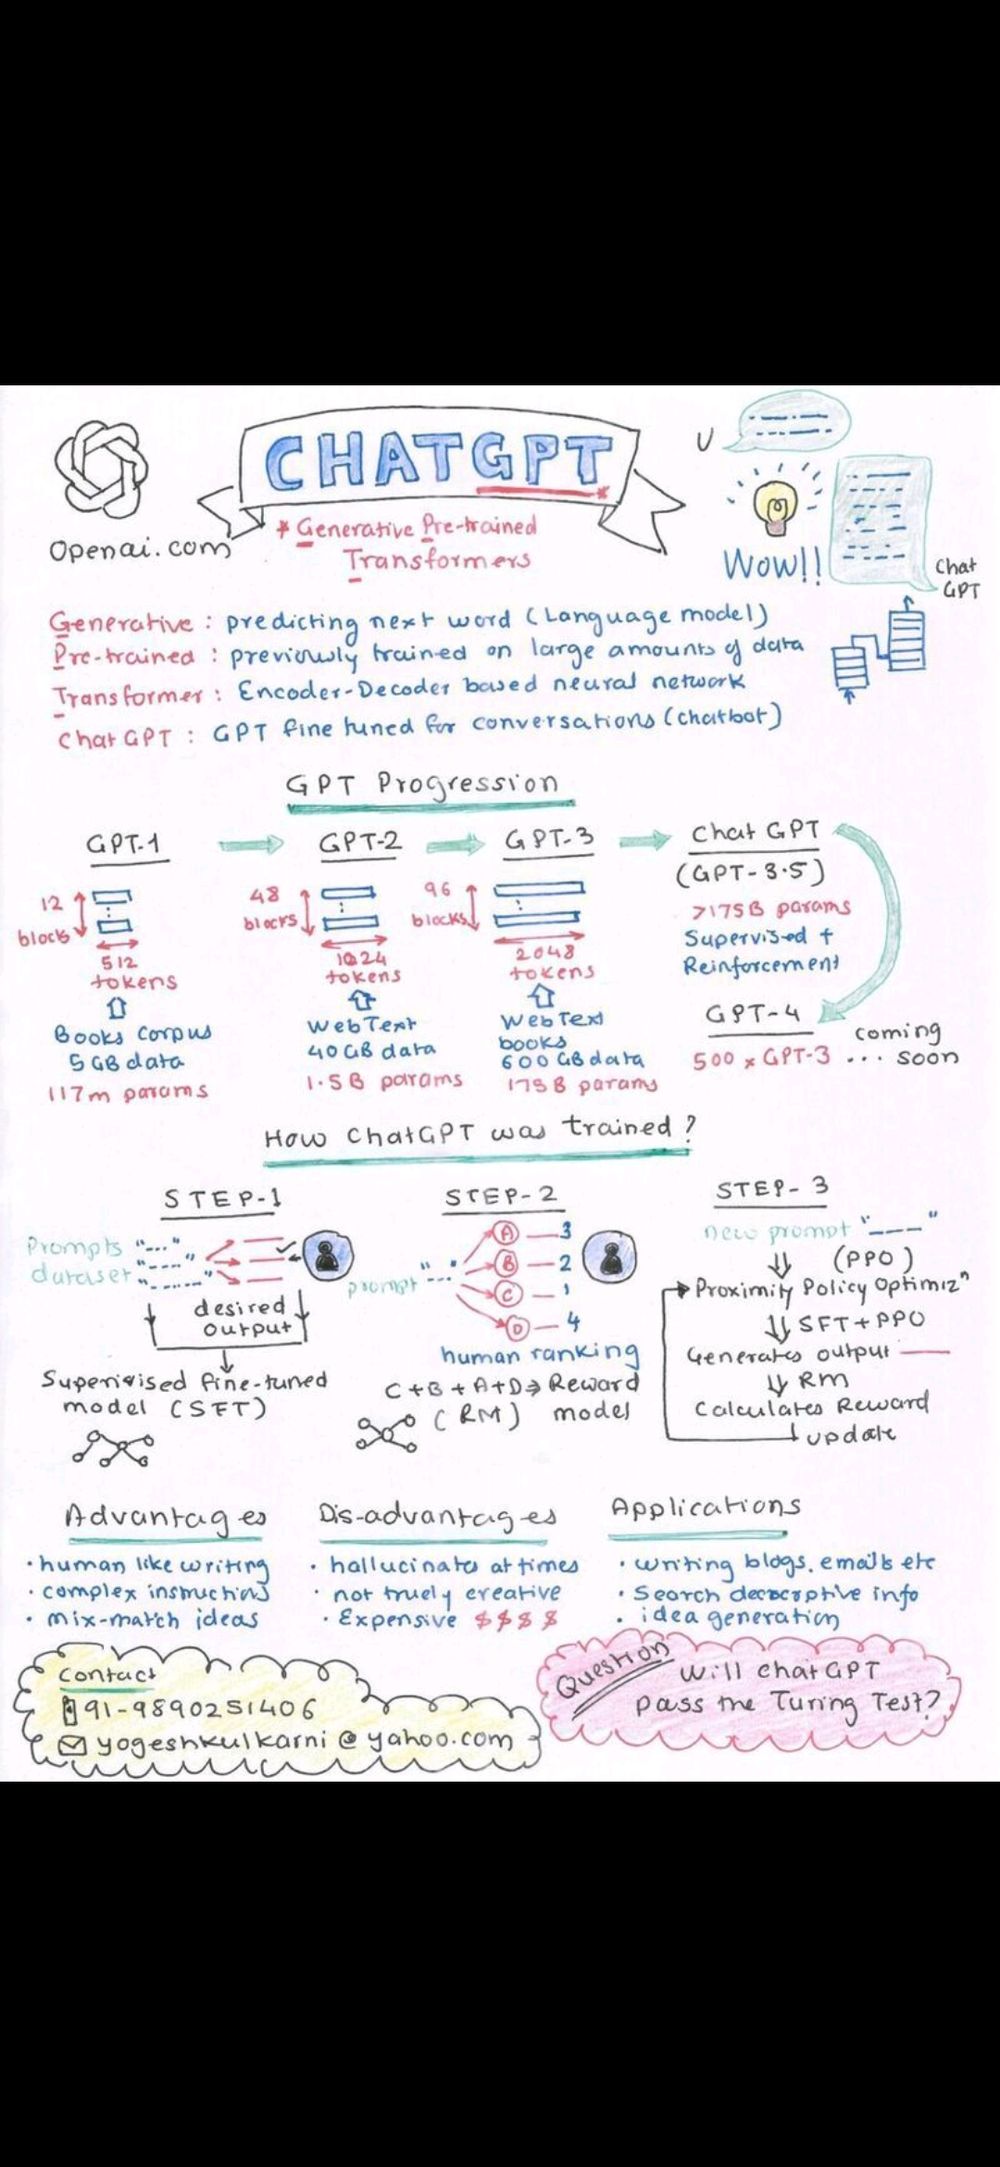 CHATGPT
U
Openai.com
* Generative Pre-trained
Transformers
Wow!!
Chat
GPT
Generative : predicting next word (Language model)
Pre-trained : previously trained on large amounts of data
Transformer : Encoder-Decoder based neural network
Chat GPT : GPT fine tuned for conversations (chatbot)
GPT Progression
GPT-1
12
blocks
512
tokens
Books corpus
5 GB data
117m params
GPT-2
48
blocks
1024
tokens
WebText
40 GB data
1.5B params
GPT-3
96
blocks
2048
tokens
WebText
books
600 GB data
175 B params
Chat GPT
(GPT-3.5)
>175B params
Supervised +
Reinforcement
GPT-4
500 x GPT-3
coming
... soon
How ChatGPT was trained?
STEP-1
Prompts "---"
dataset "----"
"------"
desired
output
Supervised fine-tuned
model (SFT)
STEP-2
prompt "---"
A — 3
B — 2
C — 1
D — 4
human ranking
C+B+A+D → Reward
(RM) model
STEP-3
new prompt "----"
(PPO)
Proximity Policy Optimizn
SFT+PPO
Generates output
RM
Calculates Reward
update
Advantages
• human like writing
• complex instructions
• mix-match ideas
Dis-advantages
• hallucinates at times
• not truely creative
• Expensive $$$$
Applications
• writing blogs, emails etc
• Search info
• idea generation
Contact
91-9890251406
yogeshkulkarni@yahoo.com
Question
Will chatGPT
pass the Turing Test?